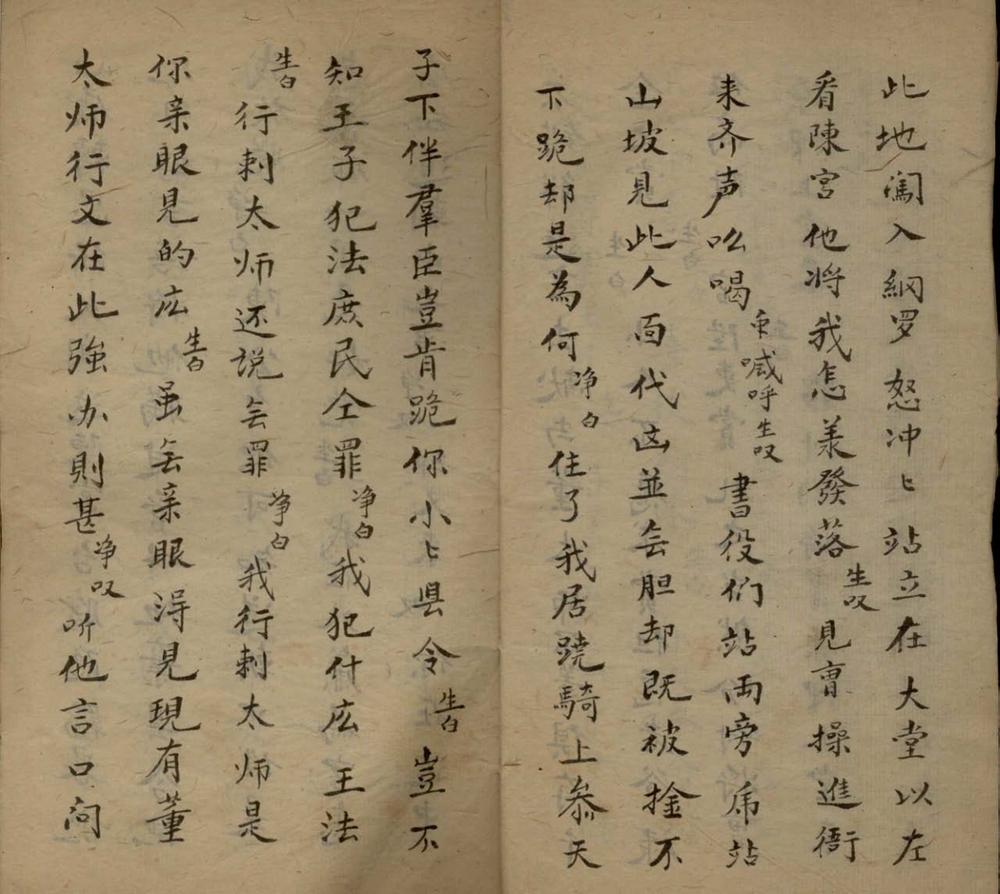 此地闖入網罗怒冲〻站立在大堂以左
看陳宮他将我怎羕發落生叹見曺操進衙
来齐声吆喝 喊呼生叹書役们站両旁 站
山坡見此人面代凶並㒶胆却既被捦不
下跪却是為何净白住了我居 騎上叅天
子下伴羣臣豈肯跪你小〻县令生白豈不
知王子犯法庶民仝罪净白我犯什庅王法
生白行刺太师还説㒶罪净白我行刺太师是
你亲眼見的庅生白虽㒶亲眼淂見現有董
太师行文在此強办則甚净叹听他言口问